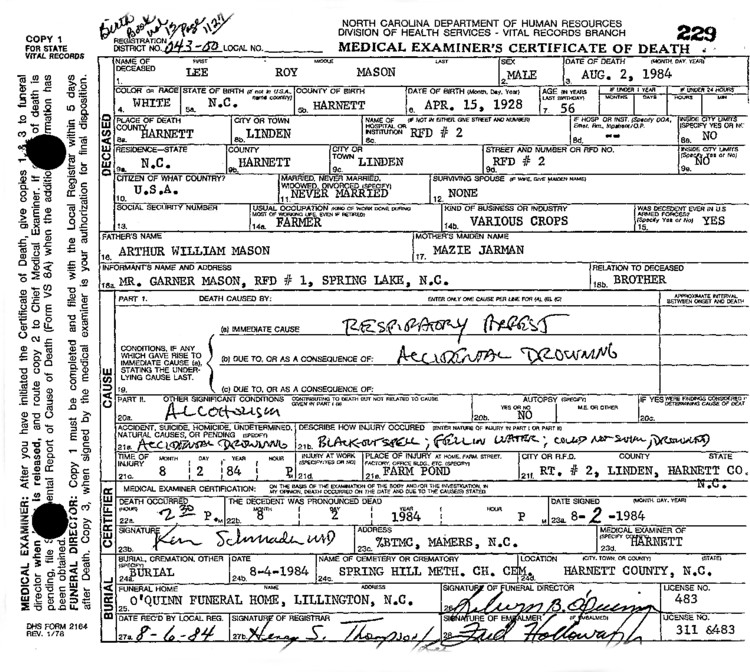 Birth
Book
No 13 Page 1127
COPY 1
FOR STATE
VITAL RECORDS
REGISTRATION
DISTRICT NO. 043-00 LOCAL NO.
NORTH CAROLINA DEPARTMENT OF HUMAN RESOURCES
DIVISION OF HEALTH SERVICES - VITAL RECORDS BRANCH
229
MEDICAL EXAMINER'S CERTIFICATE OF DEATH
NAME OF DECEASED FIRST MIDDLE LAST SEX DATE OF DEATH (MONTH, DAY, YEAR)
1. LEE ROY MASON 2. MALE 3. AUG. 2, 1984
COLOR OR RACE STATE OF BIRTH (If not in U.S.A., name country) COUNTY OF BIRTH DATE OF BIRTH (Month, Day, Year) AGE (IN YEARS LAST BIRTHDAY) IF UNDER 1 YEAR IF UNDER 24 HOURS
MONTHS DAYS HOURS MIN
4. WHITE 5a. N.C. 5b. HARNETT 6. APR. 15, 1928 7. 56
PLACE OF DEATH COUNTY CITY OR TOWN NAME OF HOSPITAL OR INSTITUTION (IF NOT IN EITHER, GIVE STREET AND NUMBER) IF HOSP OR INST. (Specify DOA, Emer. Rm., Inpatient/O.P. INSIDE CITY LIMITS (SPECIFY YES OR NO)
8a. HARNETT 8b. LINDEN 8c. RFD # 2 8d. -- 8e. NO
RESIDENCE-STATE COUNTY CITY OR TOWN STREET AND NUMBER OR RFD NO. INSIDE CITY LIMITS (Specify Yes or No)
9a. N.C. 9b. HARNETT 9c. LINDEN 9d. RFD # 2 9e. NO
CITIZEN OF WHAT COUNTRY? MARRIED, NEVER MARRIED, WIDOWED, DIVORCED (SPECIFY) SURVIVING SPOUSE (IF WIFE, GIVE MAIDEN NAME)
10. U.S.A. 11. NEVER MARRIED 12. NONE
SOCIAL SECURITY NUMBER USUAL OCCUPATION (KIND OF WORK DONE DURING MOST OF WORKING LIFE, EVEN IF RETIRED) KIND OF BUSINESS OR INDUSTRY WAS DECEDENT EVER IN U.S. ARMED FORCES? (Specify Yes or No)
13. 14a. FARMER 14b. VARIOUS CROPS 15. YES
FATHER'S NAME MOTHER'S MAIDEN NAME
16. ARTHUR WILLIAM MASON 17. MAZIE JARMAN
INFORMANT'S NAME AND ADDRESS RELATION TO DECEASED
18a. MR. GARNER MASON, RFD # 1, SPRING LAKE, N.C. 18b. BROTHER
PART 1. DEATH CAUSED BY: ENTER ONLY ONE CAUSE PER LINE FOR (A), (B), (C) APPROXIMATE INTERVAL BETWEEN ONSET AND DEATH
(a) IMMEDIATE CAUSE RESPIRATORY ARREST
CONDITIONS, IF ANY WHICH GAVE RISE TO IMMEDIATE CAUSE (a), STATING THE UNDERLYING CAUSE LAST.
(b) DUE TO, OR AS A CONSEQUENCE OF: ACCIDENTAL DROWNING
19. (c) DUE TO, OR AS A CONSEQUENCE OF:
PART II. OTHER SIGNIFICANT CONDITIONS CONTRIBUTING TO DEATH BUT NOT RELATED TO CAUSE GIVEN IN PART I (a) AUTOPSY (SPECIFY) YES OR NO M.E. OR OTHER IF YES WERE FINDINGS CONSIDERED IN DETERMINING CAUSE OF DEATH
20a. ALCOHOLISM 20b. NO 20c.
ACCIDENT, SUICIDE, HOMICIDE, UNDETERMINED, NATURAL CAUSES, OR PENDING (SPECIFY) DESCRIBE HOW INJURY OCCURED (ENTER NATURE OF INJURY IN PART I OR PART II)
21a. ACCIDENTAL DROWNING 21b. BLACKOUT SPELL; FELL IN WATER; COULD NOT SWIM, (DROWNED)
TIME OF INJURY MONTH DAY YEAR HOUR INJURY AT WORK (SPECIFY YES OR NO) PLACE OF INJURY AT HOME, FARM, STREET, FACTORY, OFFICE BLDG., ETC. (SPECIFY) CITY OR R.F.D. COUNTY STATE
21c. 8 2 84 P 21d. 21e. FARM POND 21f. RT. # 2, LINDEN, HARNETT CO. N.C.
MEDICAL EXAMINER CERTIFICATION: ON THE BASIS OF THE EXAMINATION OF THE BODY AND/OR THE INVESTIGATION, IN MY OPINION, DEATH OCCURRED ON THE DATE AND DUE TO THE CAUSE(S) STATED.
DEATH OCCURRED (HOUR) THE DECEDENT WAS PRONOUNCED DEAD MONTH DAY YEAR HOUR DATE SIGNED (MONTH, DAY, YEAR)
22a. 2:30 P.M 22b. 8 2 1984 P M 23a. 8-2-1984
SIGNATURE ADDRESS MEDICAL EXAMINER OF (SPECIFY COUNTY)
23b. 23c. %BTMC, MAMERS, N.C. 23d. HARNETT
BURIAL, CREMATION, OTHER (SPECIFY) DATE NAME OF CEMETERY OR CREMATORY LOCATION (CITY, TOWN, OR COUNTY) (STATE)
24a. BURIAL 24b. 8-4-1984 24c. SPRING HILL METH. CH. CEM. 24d. HARNETT COUNTY, N.C.
FUNERAL HOME NAME ADDRESS SIGNATURE OF FUNERAL DIRECTOR LICENSE NO.
25. O'QUINN FUNERAL HOME, LILLINGTON, N.C. 26. 483
DATE REC'D BY LOCAL REG. SIGNATURE OF REGISTRAR SIGNATURE OF EMBALMER (IF EMBALMED) LICENSE NO.
27a. 8-6-84 27b. Henry S. Thompson 28. Fred Holloway 311 &483
DECEASED
CAUSE
CERTIFIER
BURIAL
MEDICAL EXAMINER: After you have initiated the Certificate of Death, give copies 1 & 3 to funeral
director when is released, and route copy 2 to Chief Medical Examiner. If of death is
pending, file ental Report of Cause of Death (Form VS 8A) when the addition rmation has
been obtained.
FUNERAL DIRECTOR: Copy 1 must be completed and filed with the Local Registrar within 5 days
after Death. Copy 3, when signed by the medical examiner is your authorization for final disposition.
DHS FORM 2164
REV. 1/78